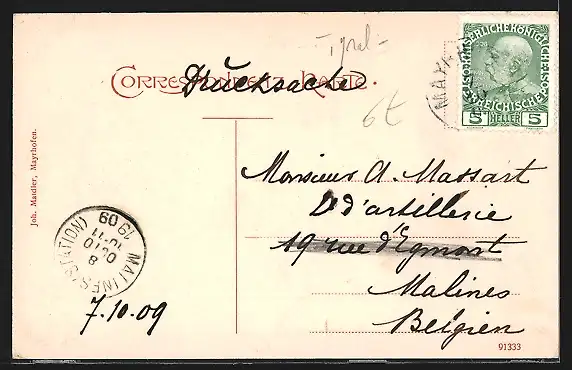 Tyrol
CORRESPONDENZ-KARTE.
Drucksache
6t
MAYRH
KAISERLICHE KÖNIGLICHE ÖSTERREICHISCHE POST
5 HELLER 5
Monsieur A. Massart
d'artillerie
19 rue d'Egmont
Malines
Belgien
Joh. Maidler, Mayrhofen.
MALINES (STATION)
8
OCTO
10-11
1909
7.10.09
91333